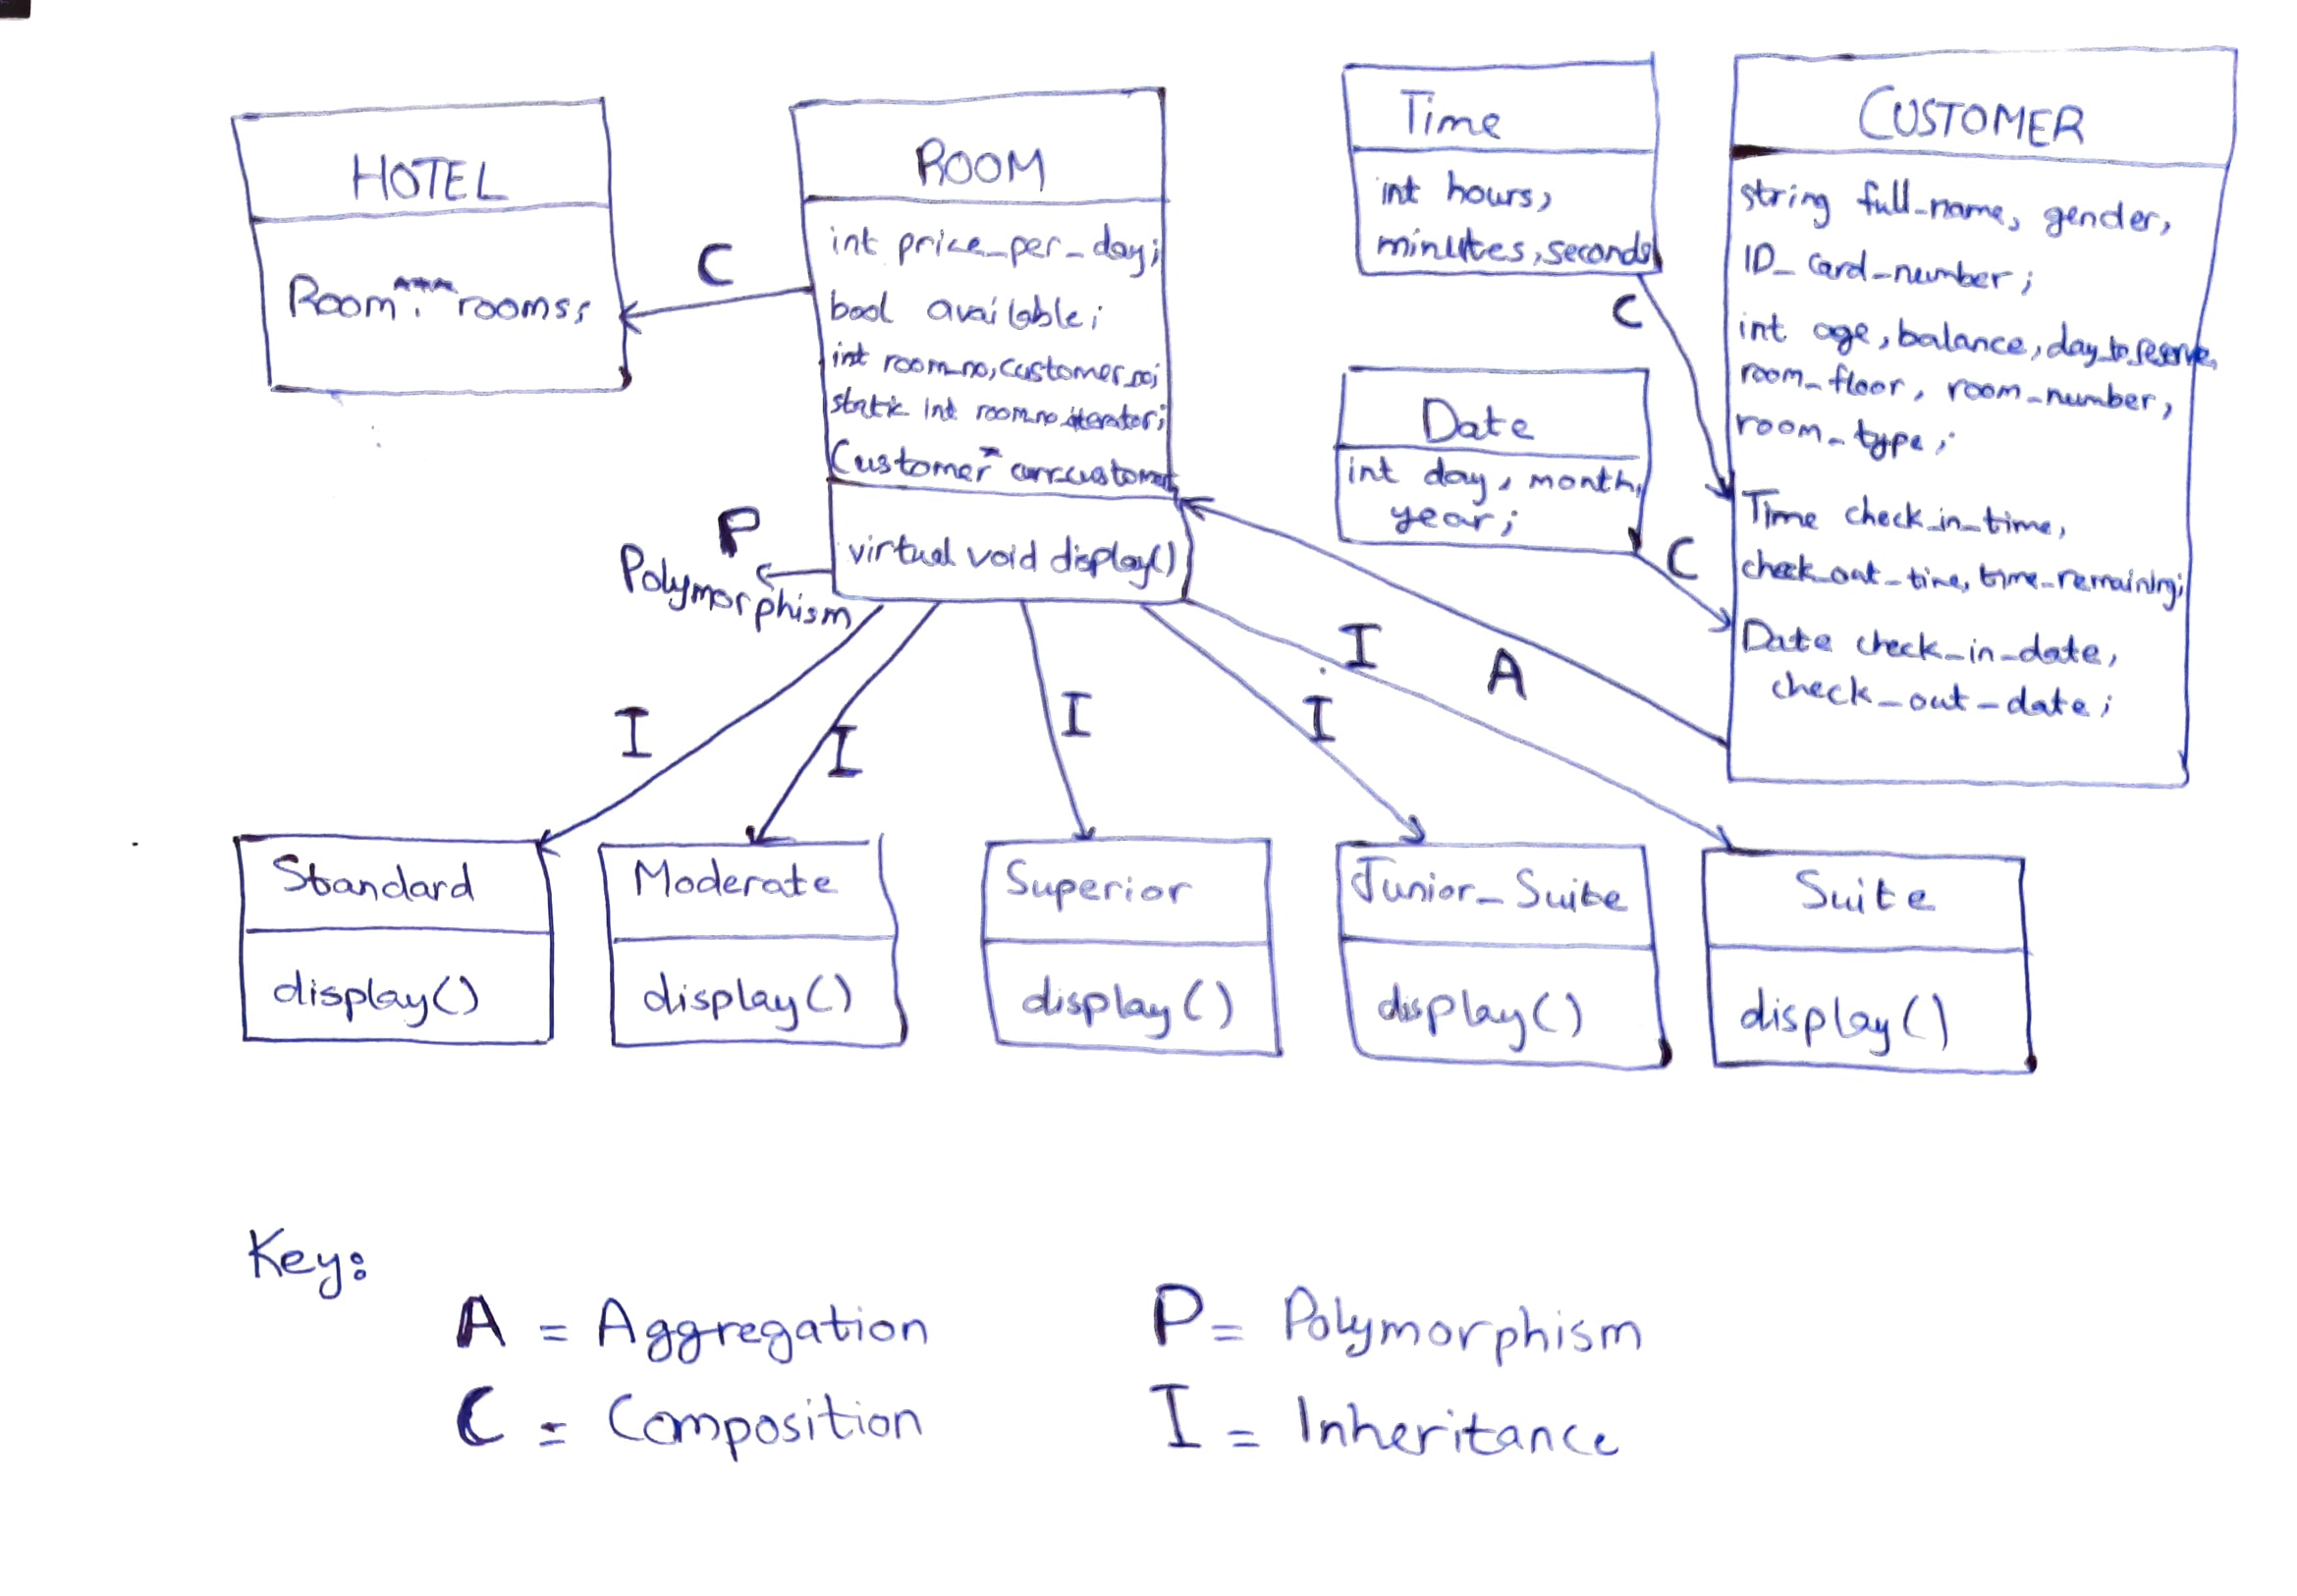 HOTEL
Room*** rooms;
C
ROOM
int price_per_day;
bool available;
int room_no, customer_no;
static int room_no_iterator;
Customer* curr_customer;
virtual void display()
P
Polymorphism
Time
int hours,
minutes, seconds
C
Date
int day, month,
year;
C
CUSTOMER
string full_name, gender,
ID_card_number;
int age, balance, day_to_reserve,
room_floor, room_number,
room_type;
Time check_in_time,
check_out_time, time_remaining;
Date check_in_date,
check_out_date;
A
I
I
I
I
I
Standard
display()
Moderate
display()
Superior
display()
Junior_Suite
display()
Suite
display()
Key:
A = Aggregation
P = Polymorphism
C = Composition
I = Inheritance